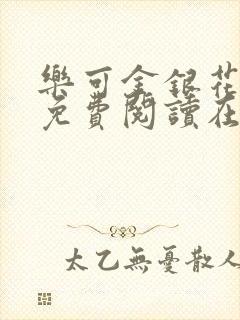 樂可金銀花
免費閱讀在
太乙無憂散人